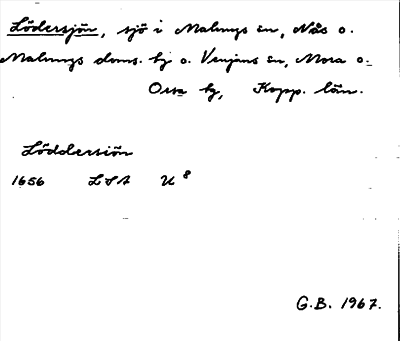 Lödersjön, sjö i Malungs sn, Nås o.
Malungs doms. hd o. Venjans sn, Mora o.
Orsa hd, Kopp. län.
Löddersiön
1656 LSA U 8
G.B. 1967.